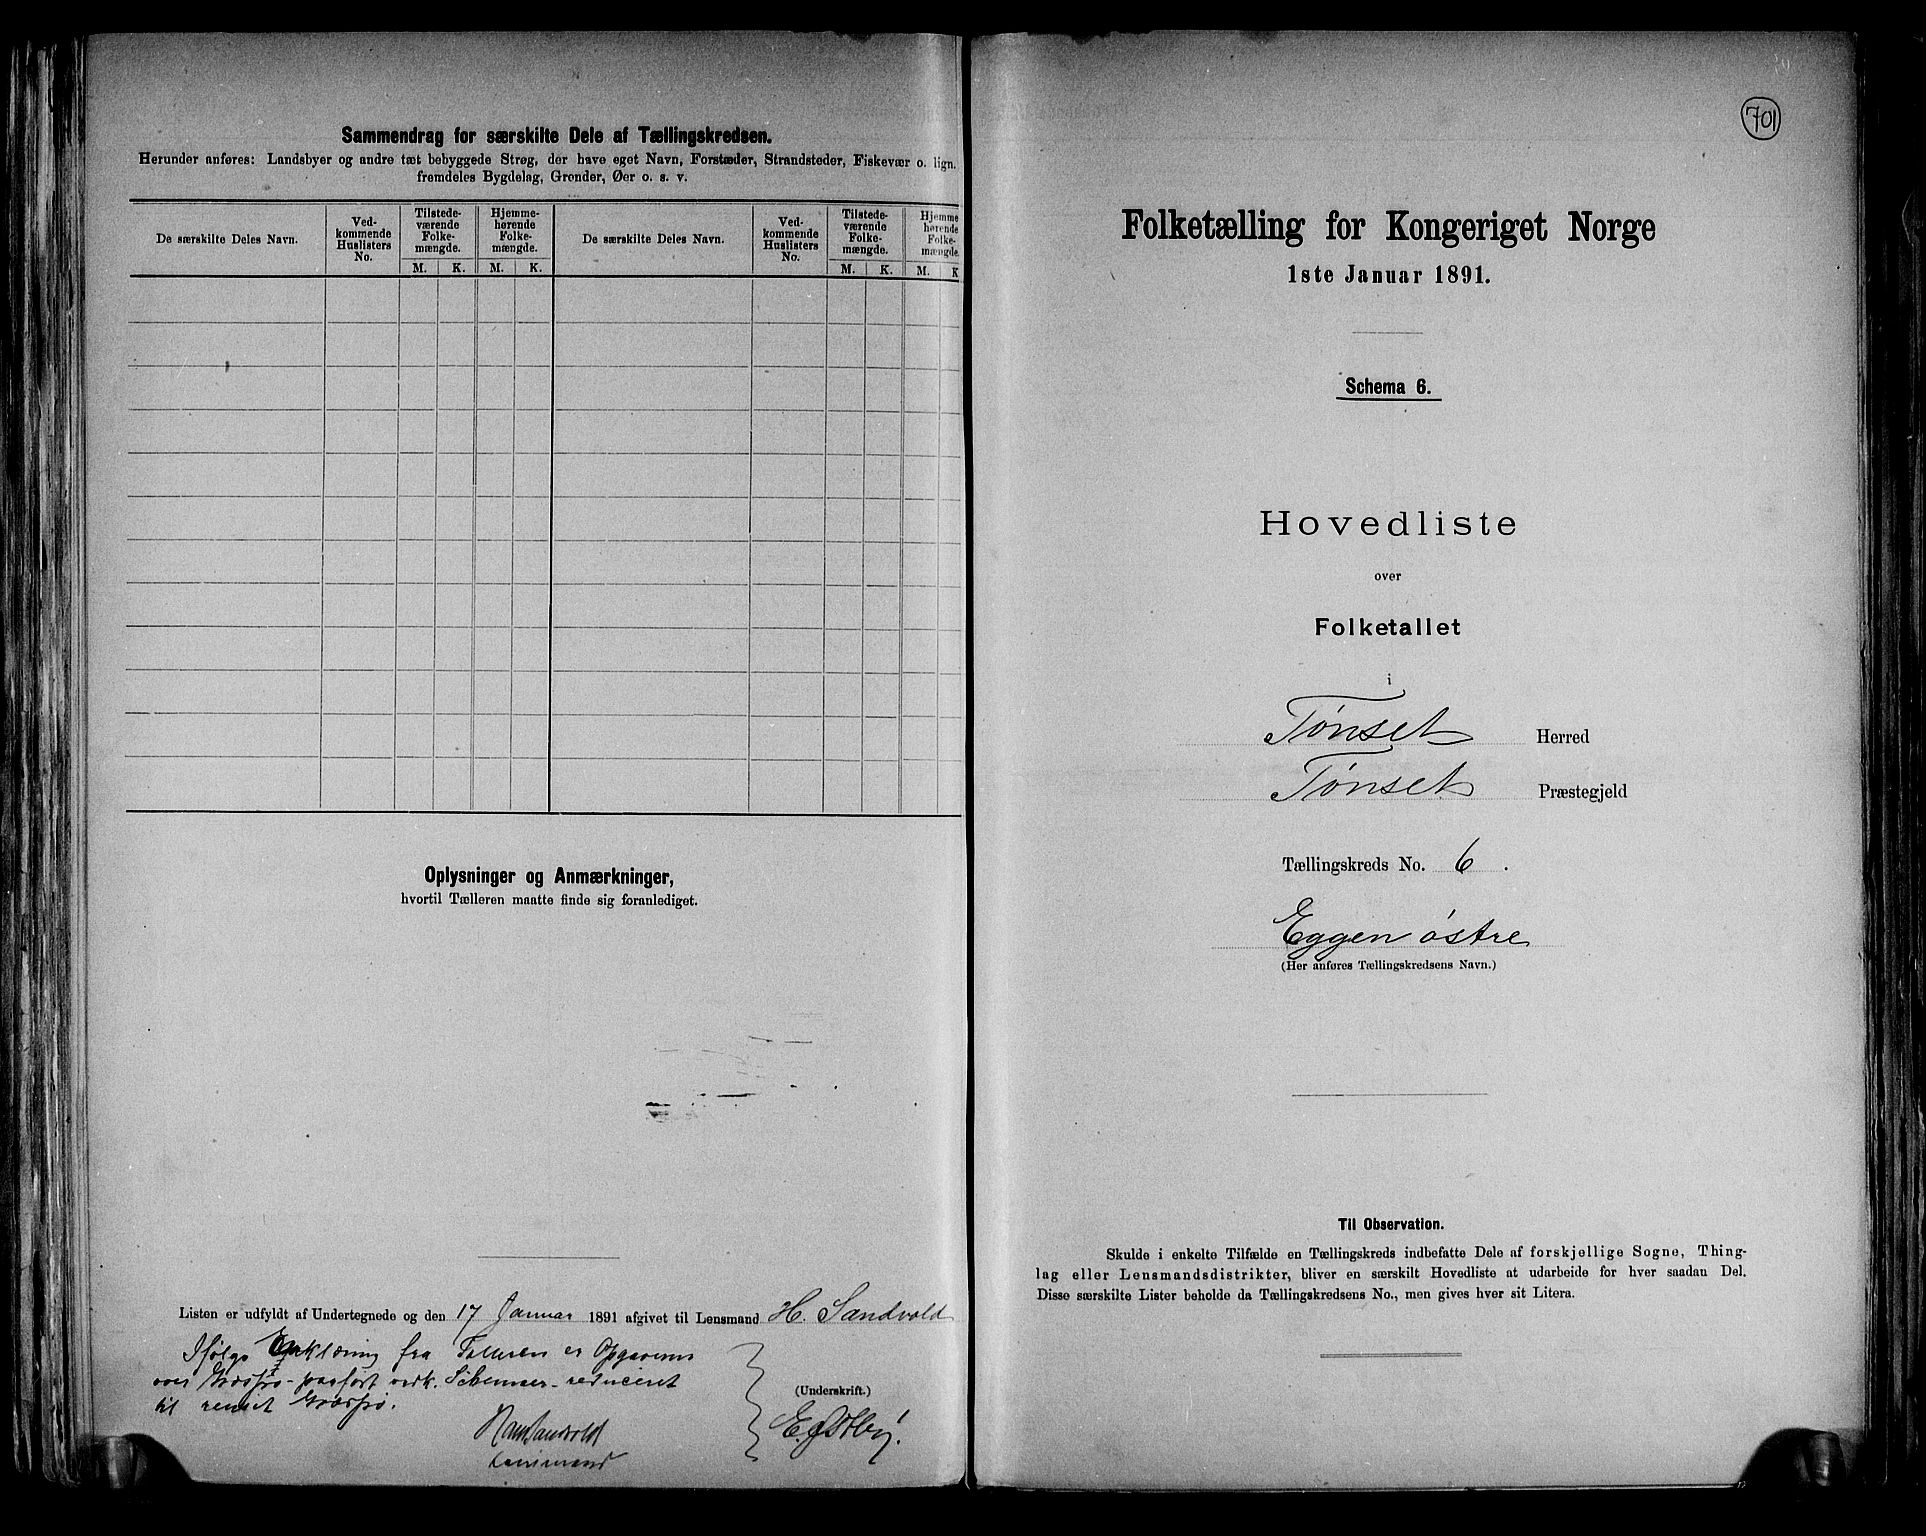 Sammendrag for særskilte Dele af Tællingskredsen.
Herunder anføres: Landsbyer og andre tæt bebyggede Strøg, der have eget Navn, Forstæder, Strandsteder, Fiskevær o. lign.
fremdeles Bygdelag, Grender, Øer o. s. v.
De særskilte Deles Navn.
Ved-
kommende
Huslisters
No.
Tilstede-
værende
Folke-
mængde.
M. K.
Hjemme-
hørende
Folke-
mængde.
M. K.
De særskilte Deles Navn.
Ved-
kommende
Huslisters
No.
Tilstede-
værende
Folke-
mængde.
M. K.
Hjemme
hørende
Folke-
mængde.
M. K
Oplysninger og Anmærkninger,
hvortil Tælleren maatte finde sig foranlediget.
Listen er udfyldt af Undertegnede og den 17 Januar 1891 afgivet til Lensmand H. Sandvold
Ifølge Erklæring fra Tælleren er Opgaverne
over Græsfrø - paaført vedk. Schemaer - reduceret
til renset Græsfrø.
Hans Sandvold
Lensmand
(Underskrift.)
E. Østby.
701
Folketælling for Kongeriget Norge
1ste Januar 1891.
Schema 6.
Hovedliste
over
Folketallet
i
Tønset Herred
Tønset Præstegjeld
Tællingskreds No. 6.
Eggen østre
(Her anføres Tællingskredsens Navn.)
Til Observation.
Skulde i enkelte Tilfælde en Tællingskreds indbefatte Dele af forskjellige Sogne, Thing-
lag eller Lensmandsdistrikter, bliver en særskilt Hovedliste at udarbeide for hver saadan Del.
Disse særskilte Lister beholde da Tællingskredsens No., men gives hver sit Litera.